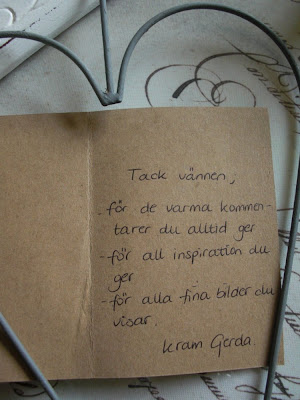 Tack vännen,
- för de varma kommen-
tarer du alltid ger
- för all inspiration du
ger
- för alla fina bilder du
visar.
kram Gerda.